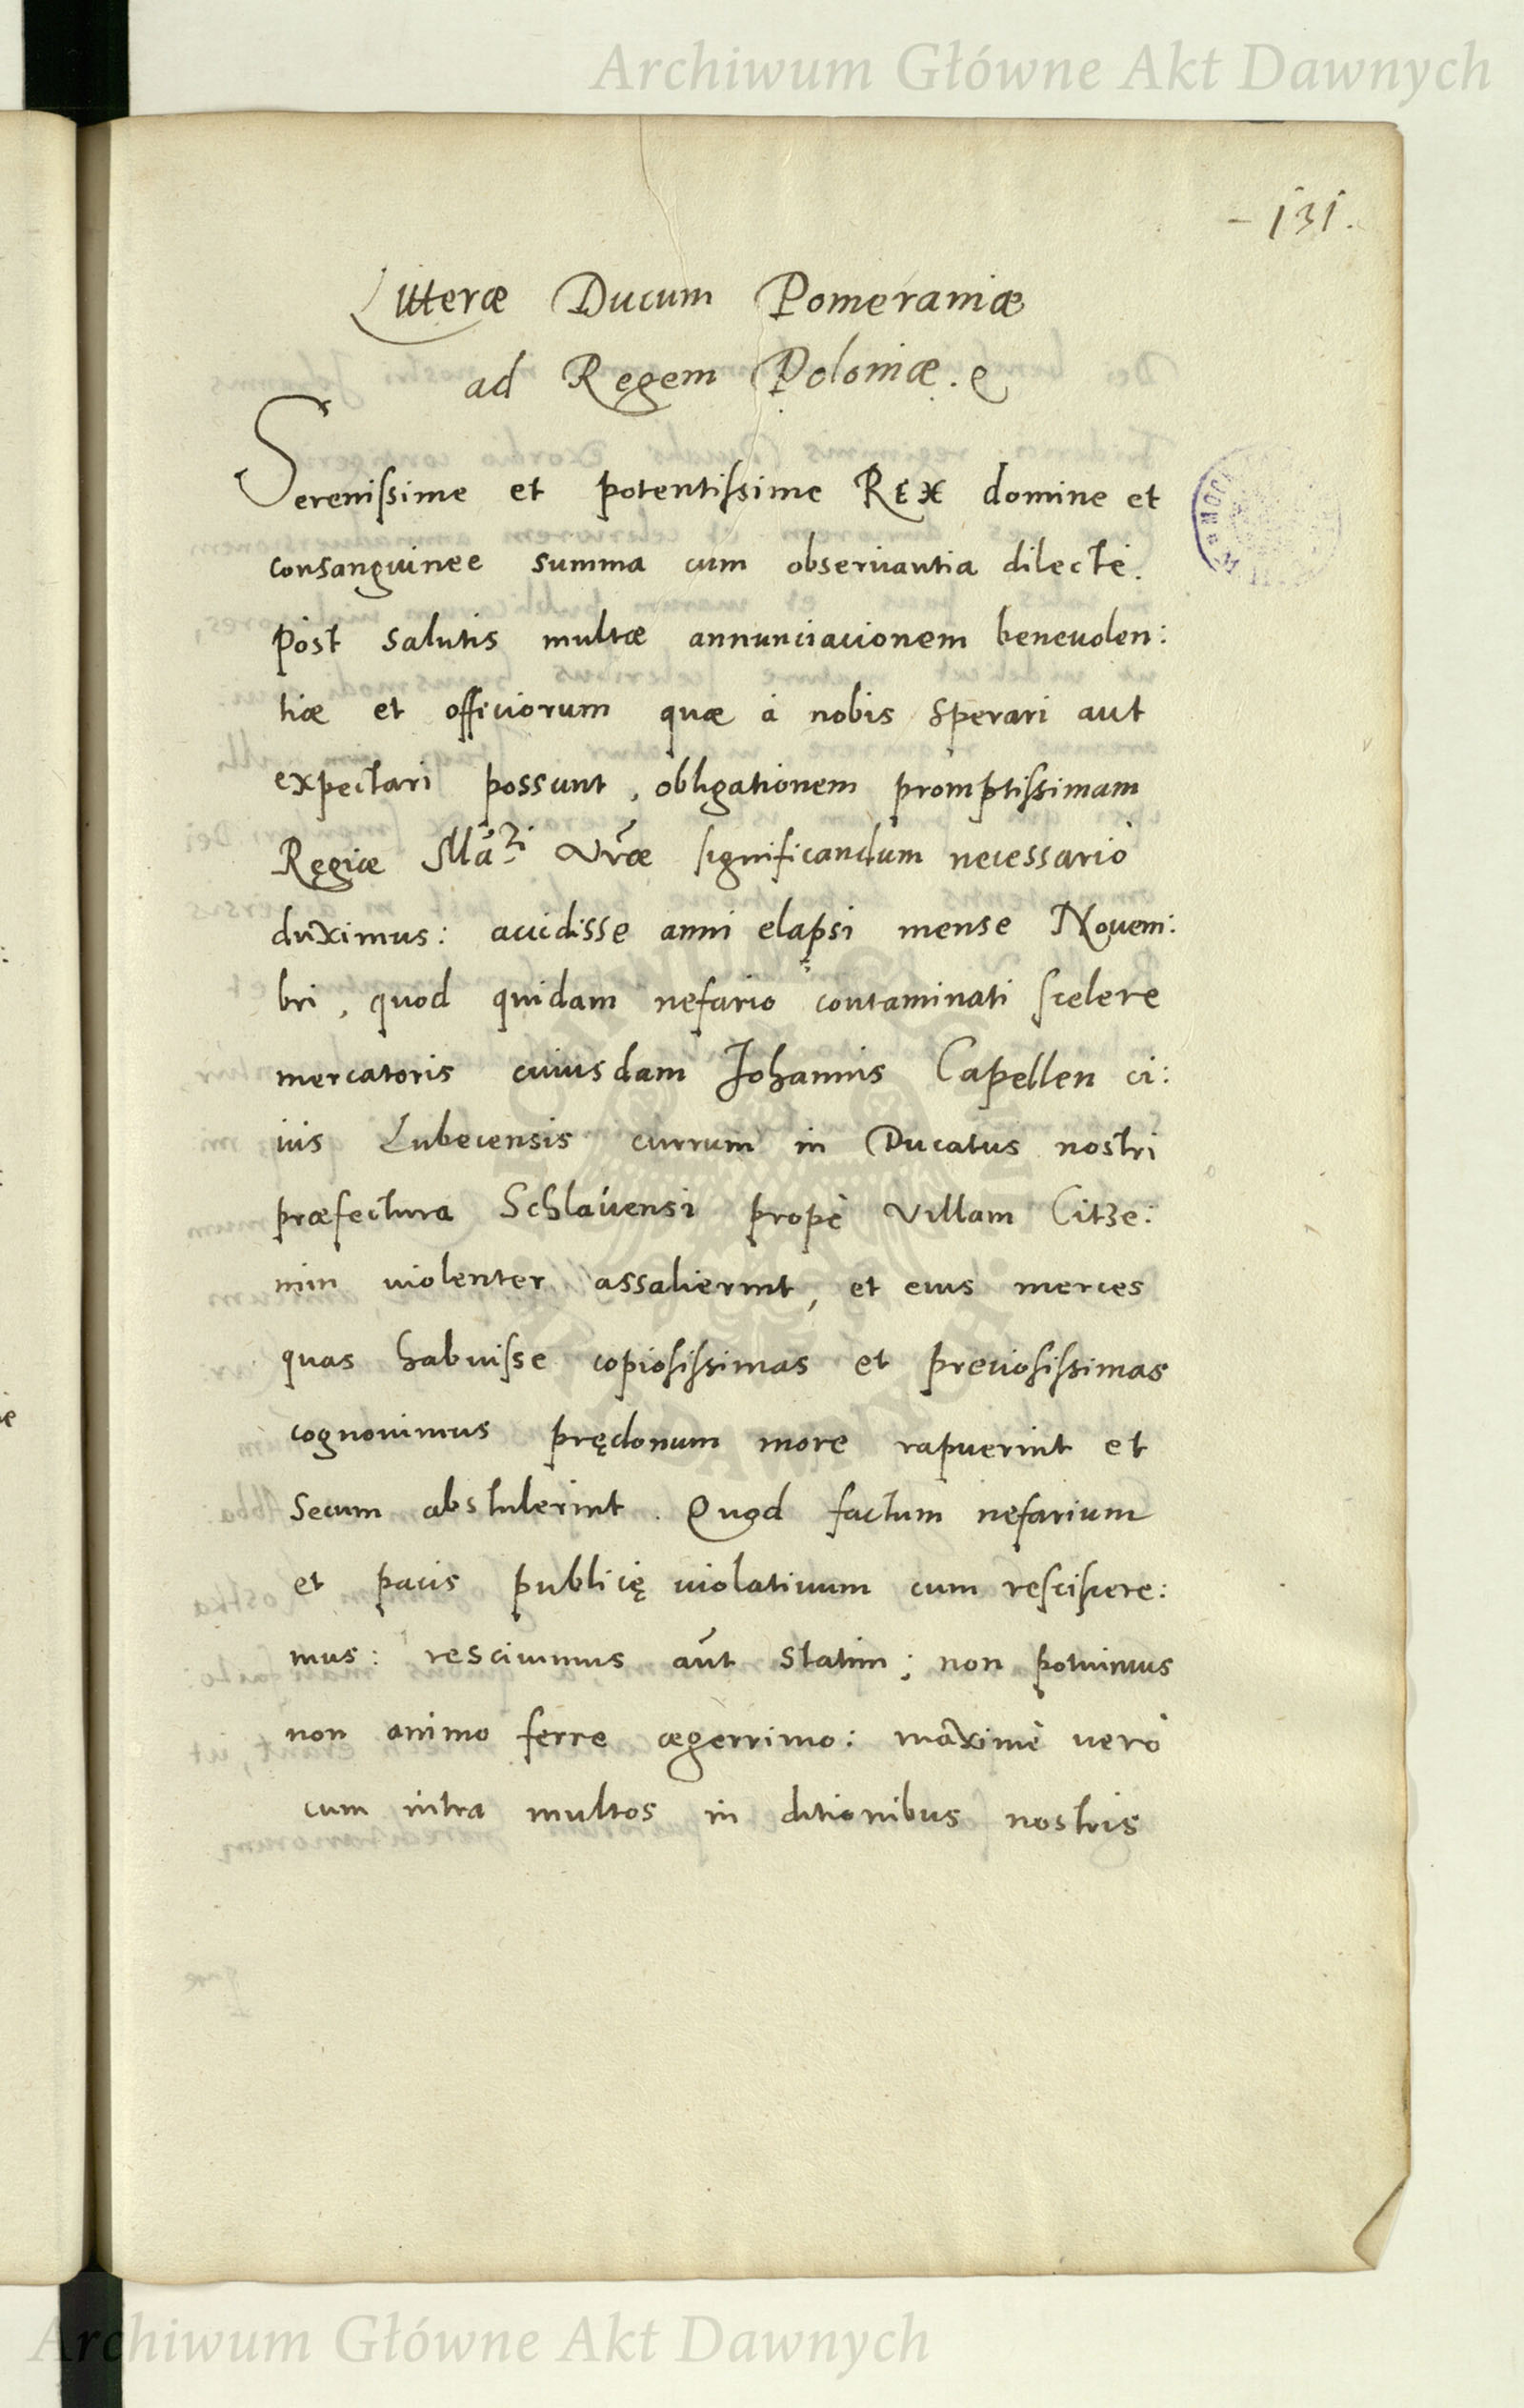 Archiwum Główne Akt Dawnych
- 131.
Litteræ Ducum Pomeraniæ
ad Regem Poloniæ.
Serenissime et potentissime REX domine et
consanguinee summa cum obseruantia dilecte.
Post salutis multæ annunciacionem beneuolen:
tiæ et officiorum quæ à nobis sperari aut
expectari possunt, obligationem promptissimam
Regiæ Mátı Vr̃æ significandum necessariò
duximus: accidisse anni elapsi mense Nouem:
bri, quod quidam nefario contaminati scelere
mercatoris cuiusdam Johannis Capellen ci:
uis Lubecensis currum in Ducatus nostri
præfectura Schlauensi propè Villam Citze:
min violenter assalierint, et eius merces
quas habuisse copiosissimas et preciosissimas
cognouimus prędonum more rapuerint et
secum abstulerint. Quod factum nefarium
et pacis publicę violatiuum cum rescisscere:
mus: resciuimus aũt statim; non potuimus
non animo ferre ægerrimo: maximè verò
cum intra multos in ditionibus nostris
Archiwum Główne Akt Dawnych